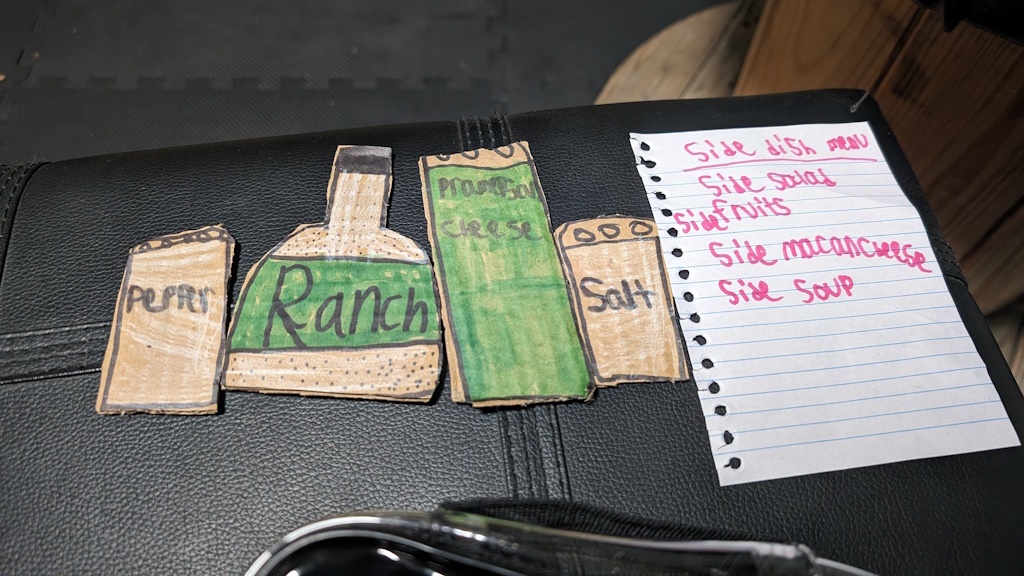 Pepper
Ranch
cheese
Salt
Side dish menu
Side salad
Side fruits
Side macancheese
Side soup